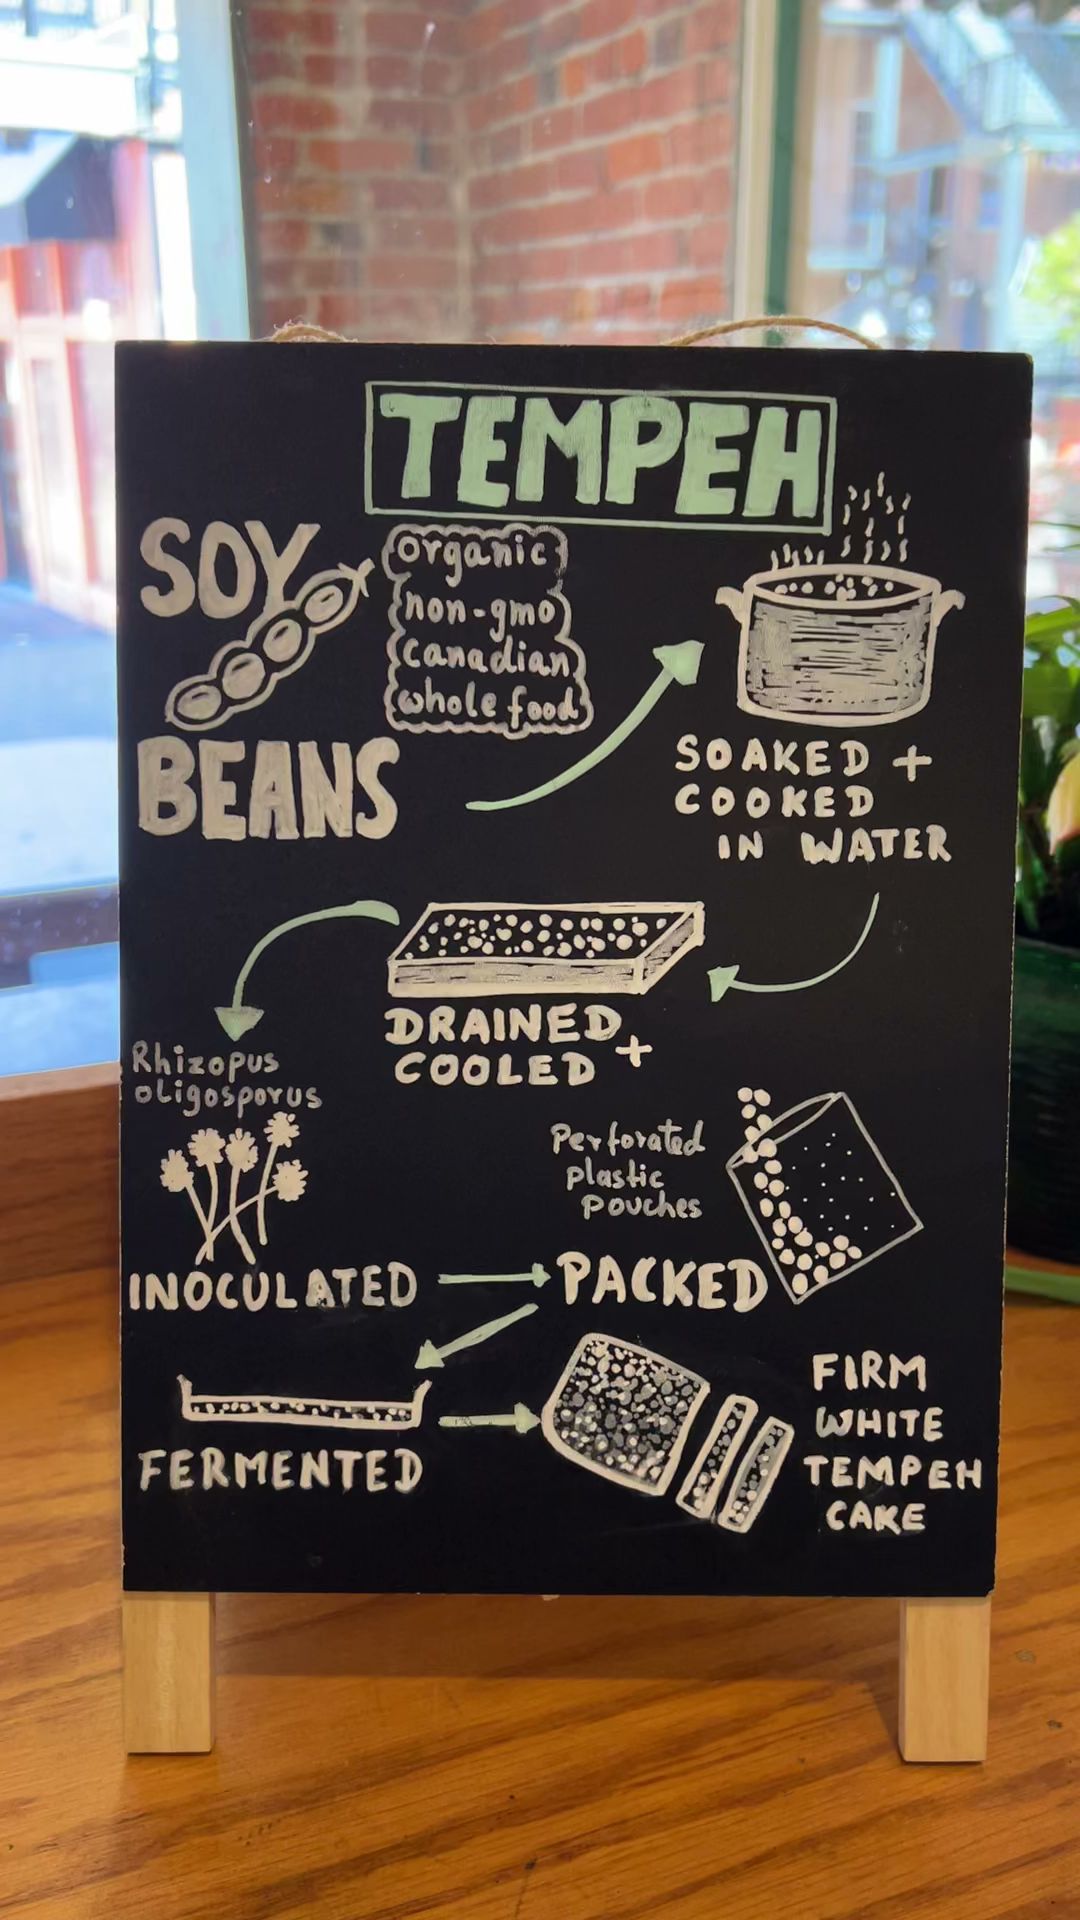 TEMPEH
SOY
BEANS
organic
non-gmo
canadian
whole food
SOAKED +
COOKED
IN WATER
DRAINED +
COOLED
Rhizopus
oligosporus
INOCULATED
Perforated
plastic
pouches
PACKED
FERMENTED
FIRM
WHITE
TEMPEH
CAKE